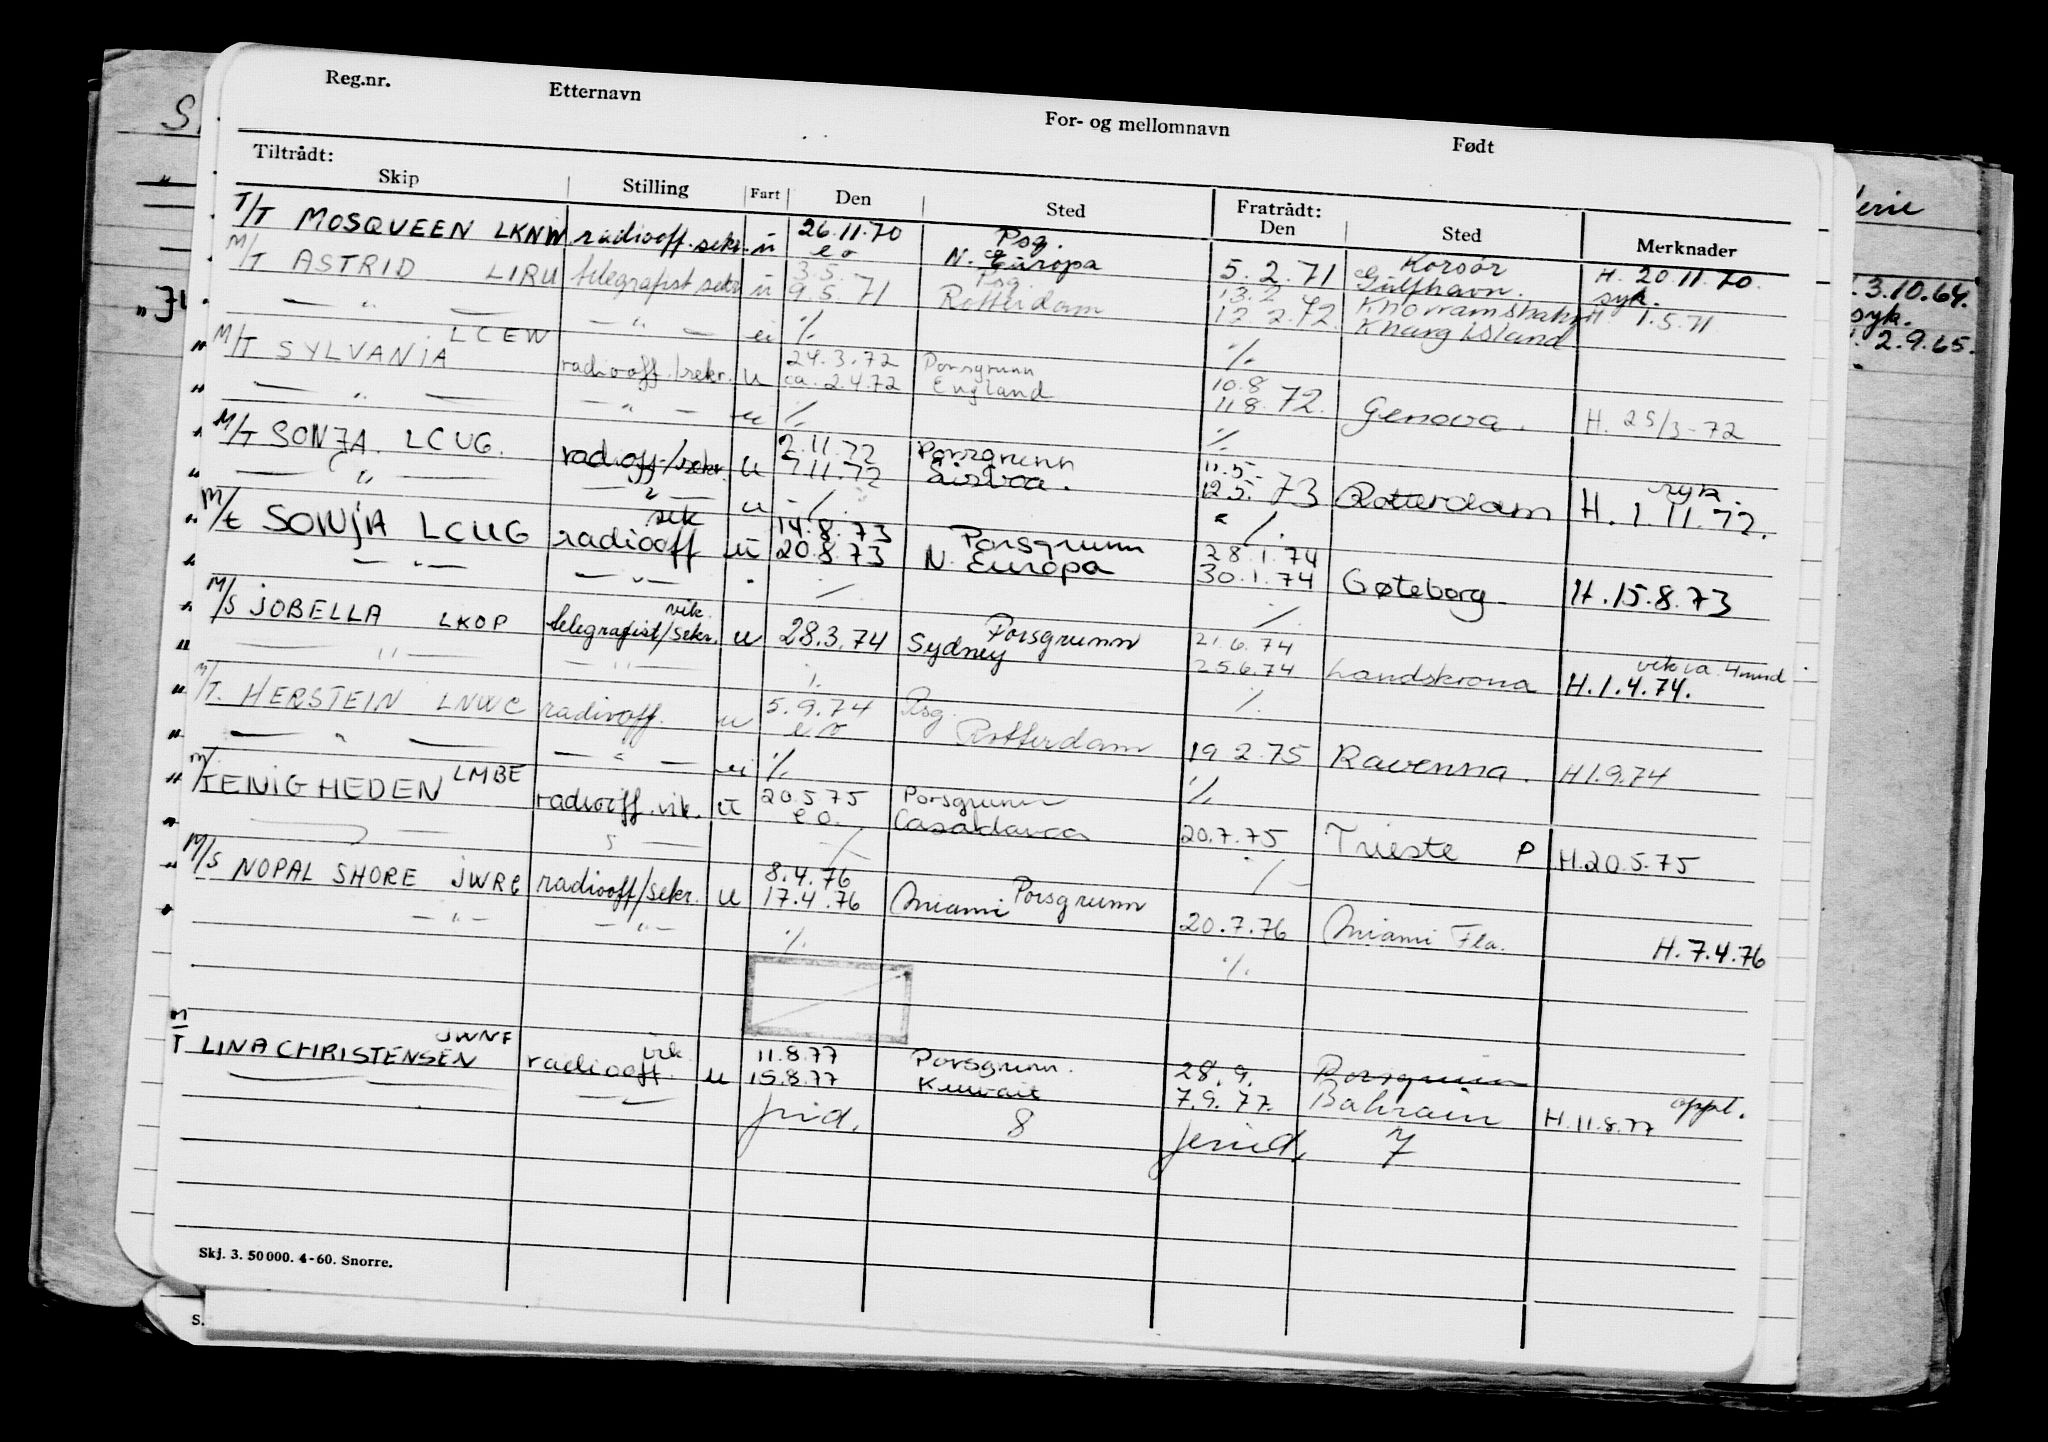 Reg.nr. Etternavn For- og mellomnavn Født
Tiltrådt: Fratrådt:
Skip Stilling Fart Den Sted Den Sted Merknader
T/T MOSQUEEN LKNW radiooff. sekr. u 26.11.70 Psg. Korsør
e o N. Europa 5.2.71 Gulfhavn. H. 20.11.70.
M/T ASTRID LIRU telegrafist sekr u 3.5. Psg syk.
9.5.71 Rotterdam 13.2 Khorramshahr H 1.5.71
— " — — " — u ./. 12.2.72. Kharg island
M/T SYLVANIA LCEW radiooff./sekr. u 24.3.72 Porsgrunn ./.
ca. 2.4.72 England 10.8
— " — — " — u ./. 11.8.72. Genova. H. 25/3-72
M/T SONJA. LCUG. radiooff/sekr. u 2.11.72 Porsgrunn ./.
7.11.72 Lisboa. 11.5. syk.
— " — — " — u ./. 12.5.73 Rotterdam H. 1.11.72.
M/t SONJA LCUG radiooff sek u 14.8.73 Porsgrunn ./.
20.8.73 N. Europa 28.1.74
— " — — " — " ./. 30.1.74 Gøteborg H.15.8.73
M/S JOBELLA LKOP telegrafist/sekr. vik. u 28.3.74 Porsgrunn ./.
Sydney 21.6.74 vik ca. 4 mnd
— " — — " — ./. 25.6.74 Landskrona H.1.4.74.
M/T. HERSTEIN LNWC radiooff. u 5.9.74 Psg. ./.
e o Rotterdam
— " — — " — u ./. 19 2.75 Ravenna. H1.9.74
M/T ENIGHEDEN LMBE radiooff. vik. u 20.5.75 Porsgrunn ./.
e o. Casablanca
./. 20.7.75 Trieste P H.20.5.75
M/S NOPAL SHORE JWRG radiooff/sekr. u 8.4.76 Porsgrunn ./.
17.4.76 Miami
— " — — " — ./. 20.7.76 Miami Fla. H. 7.4.76
./.
M/T LINA CHRISTENSEN JWNF radiooff. vik. u 11.8.77 Porsgrunn. 28.9. Porsgrunn
15.8.77 Kuwait 7.9.77. Bahrain oppl.
H.11.8.77
8 7
Skj. 3. 50 000. 4-60. Snorre.
S.
3.10.64.
syk.
2.9.65.